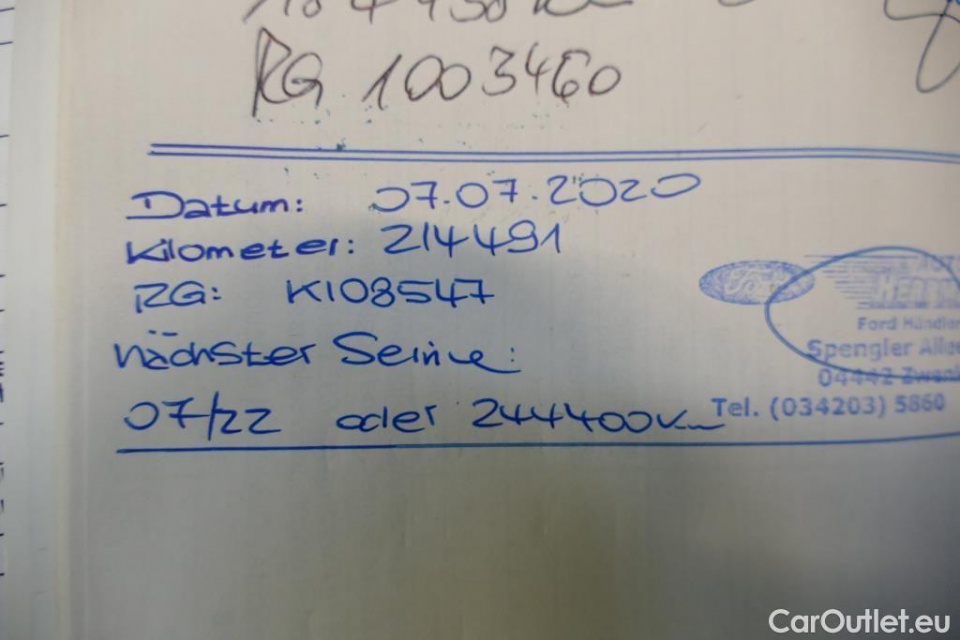 RG 1003460
Datum: 07.07.2020
Kilometer: 214491
RG: K108547
nächster Service:
07/22 oder 244400km
Ford
Ford Händler
Spengler
04442
Tel. (034203) 5860
CarOutlet.eu